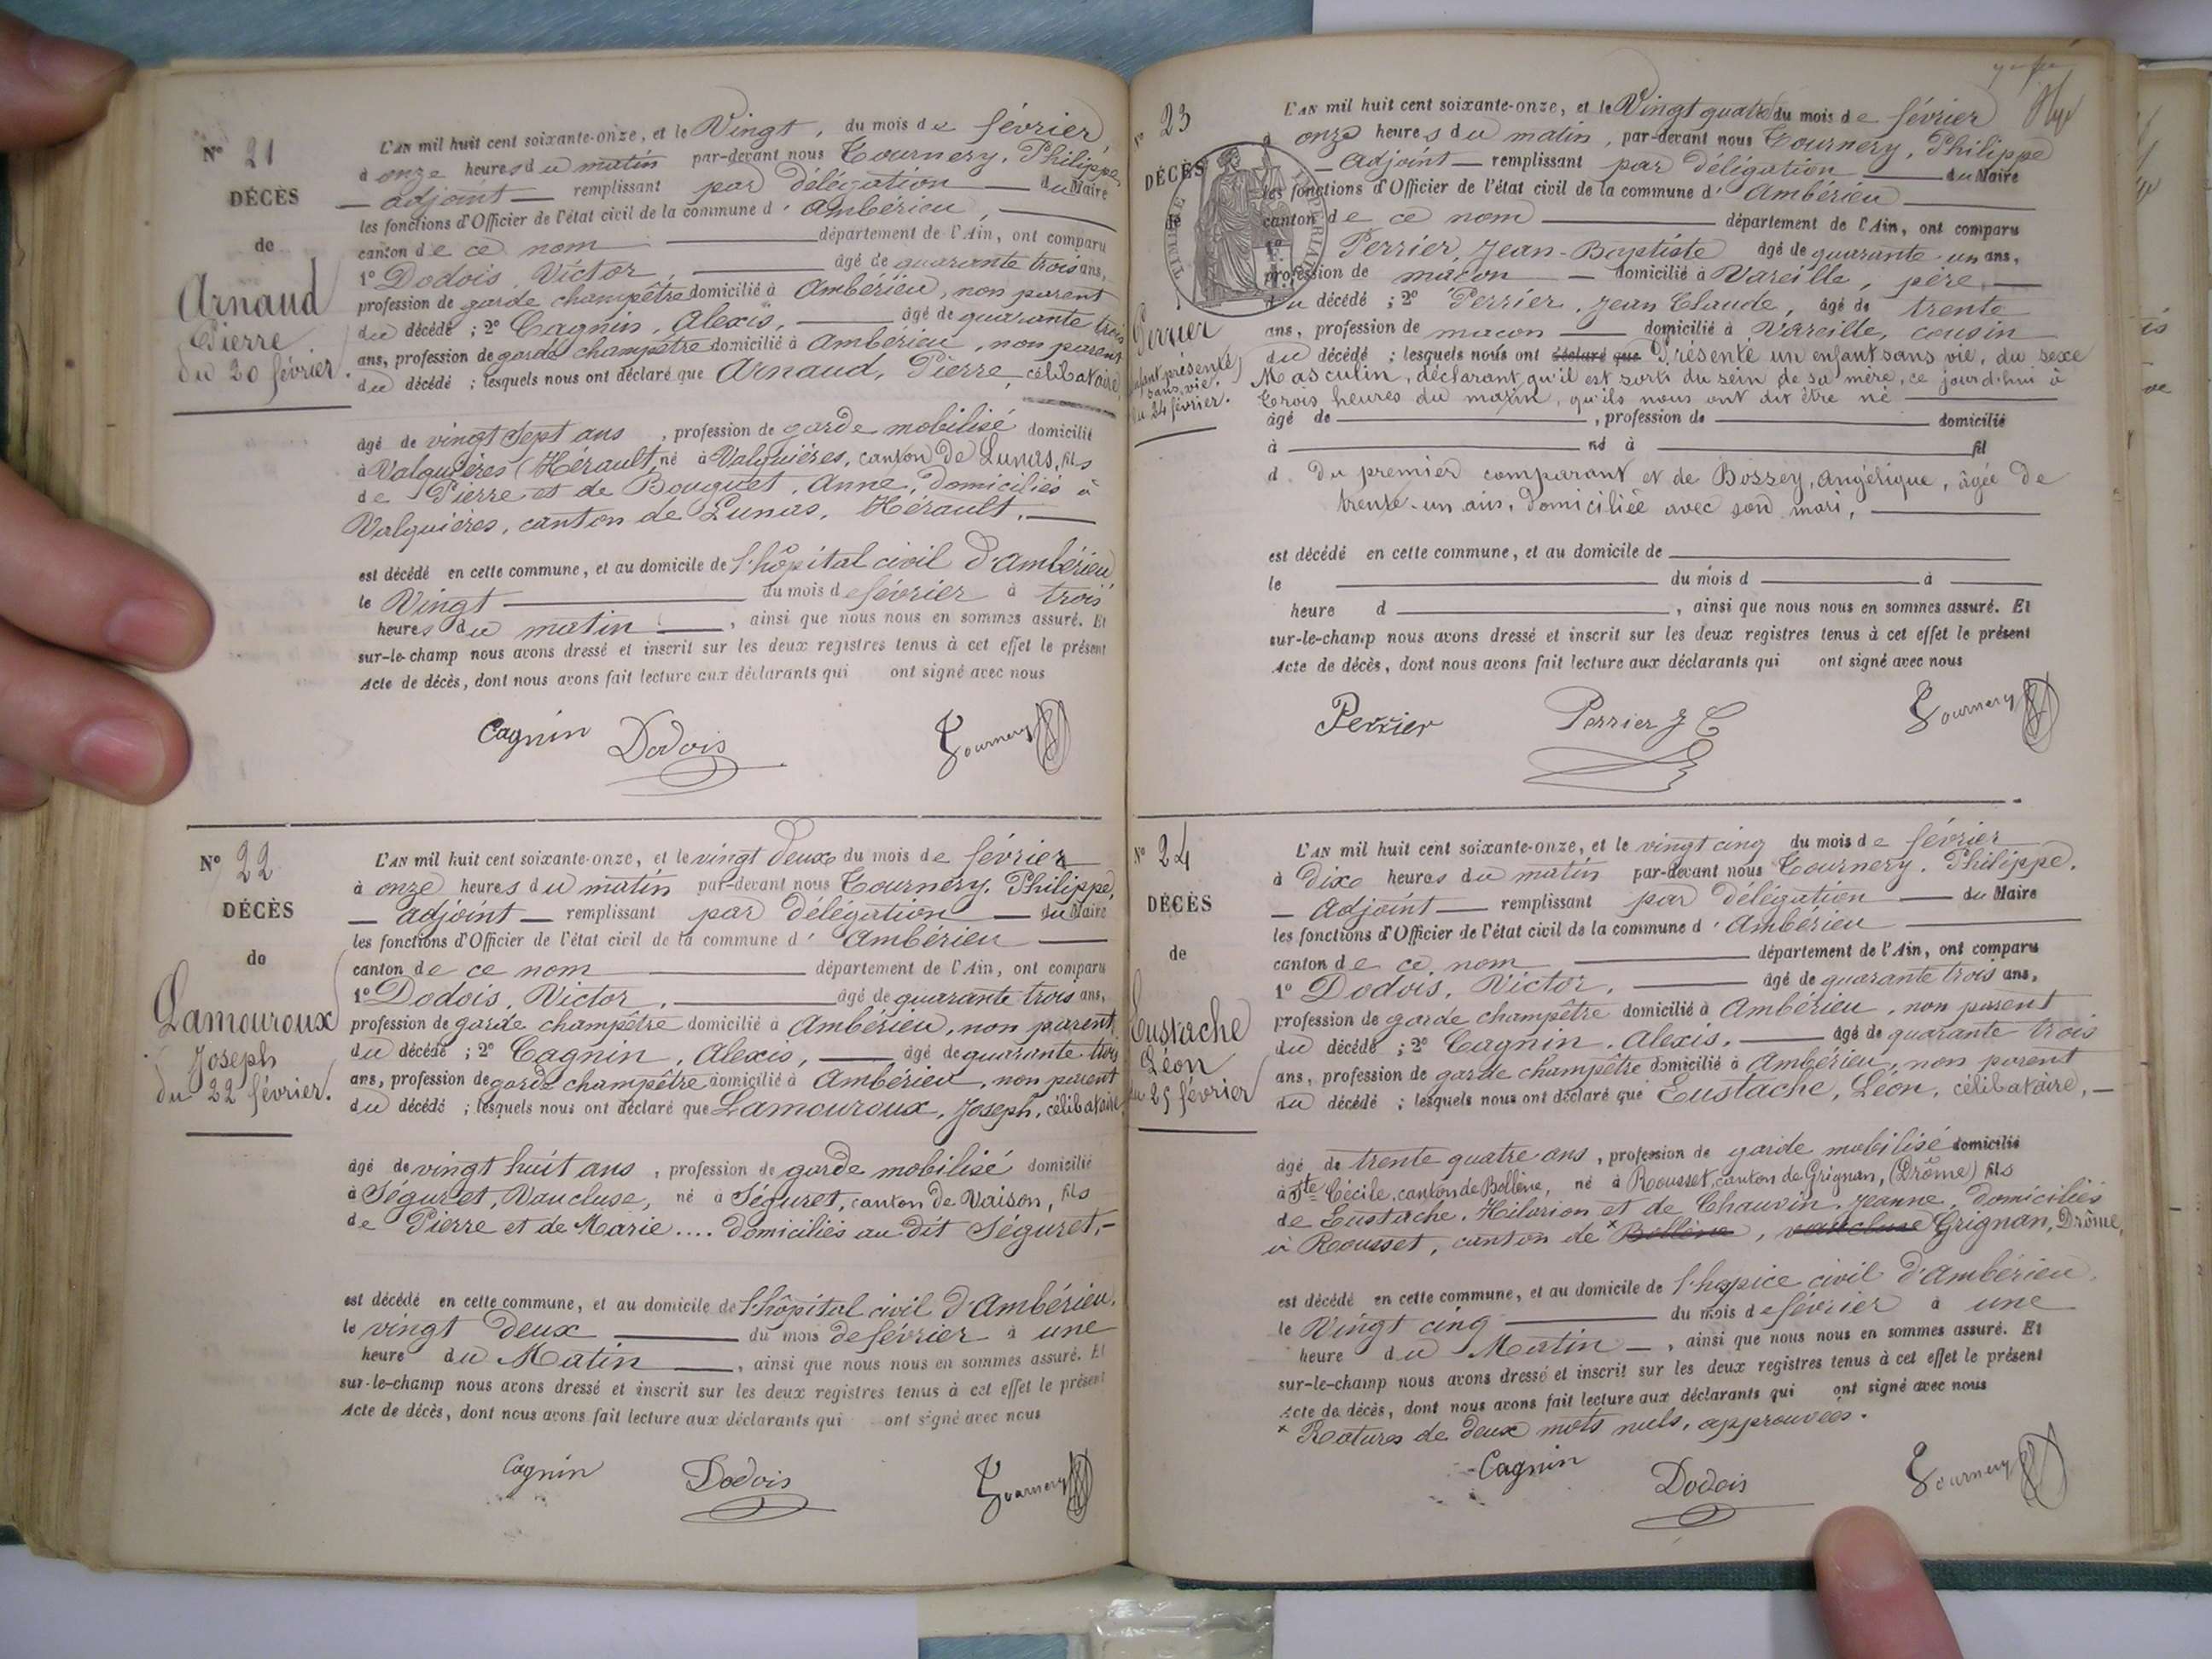 N° 21
DÉCÈS
de
Arnaud
Pierre
du 20 février.
L'AN mil huit cent soixante-onze, et le Vingt, du mois de février
à onze heures du matin par-devant nous Tournery, Philippe,
— adjoint — remplissant par délégation — du Maire
les fonctions d'Officier de l'état civil de la commune d'Ambérieu,
canton de ce nom département de l'Ain, ont comparu
1° Dodois, Victor, âgé de quarante trois ans,
profession de garde champêtre domicilié à Ambérieu, non parent
du décédé ; 2° Cagnin, Alexis, âgé de quarante trois
ans, profession de garde champêtre domicilié à Ambérieu, non parent
du décédé ; lesquels nous ont déclaré que Arnaud, Pierre, célibataire,
âgé de vingt sept ans, profession de garde mobilisé domicilié
à Valquières (Hérault, né à Valquières, canton de Lunas, fils
de Pierre et de Bouguet, Anne, domiciliés à
Valquières, canton de Lunas, Hérault,
est décédé en cette commune, et au domicile de l'hôpital civil d'Ambérieu
le Vingt du mois de février à trois
heures du matin, ainsi que nous nous en sommes assuré. Et
sur-le-champ nous avons dressé et inscrit sur les deux registres tenus à cet effet le présent
Acte de décès, dont nous avons fait lecture aux déclarants qui ont signé avec nous
Cagnin Dodois Tournery
N° 22
DÉCÈS
de
Lamouroux
Joseph
du 22 février.
L'AN mil huit cent soixante-onze, et le vingt deux du mois de février
à onze heures du matin par-devant nous Tournery, Philippe,
— adjoint — remplissant par délégation — du Maire
les fonctions d'Officier de l'état civil de la commune d'Ambérieu
canton de ce nom département de l'Ain, ont comparu
1° Dodois, Victor, âgé de quarante trois ans,
profession de garde champêtre domicilié à Ambérieu, non parent
du décédé ; 2° Cagnin, Alexis, âgé de quarante trois
ans, profession de garde champêtre domicilié à Ambérieu, non parent
du décédé ; lesquels nous ont déclaré que Lamouroux, Joseph, célibataire
âgé de vingt huit ans, profession de garde mobilisé domicilié
à Séguret, Vaucluse, né à Séguret, canton de Vaison, fils
de Pierre et de Marie .... domiciliés au dit Séguret, –
est décédé en cette commune, et au domicile de l'hôpital civil d'Ambérieu.
le vingt deux du mois de février à une
heure du Matin, ainsi que nous nous en sommes assuré. Et
sur-le-champ nous avons dressé et inscrit sur les deux registres tenus à cet effet le présent
Acte de décès, dont nous avons fait lecture aux déclarants qui ont signé avec nous
Cagnin Dodois Tournery
N° 23
DÉCÈS
de
Perrier
Enfant présenté
sans vie.
du 24 février.
L'AN mil huit cent soixante-onze, et le Vingt quatre du mois de février
à onze heures du matin, par-devant nous Tournery, Philippe
— adjoint — remplissant par délégation — du Maire
les fonctions d'Officier de l'état civil de la commune d'Ambérieu
canton de ce nom département de l'Ain, ont comparu
1° Perrier, Jean-Baptiste âgé de quarante un ans,
profession de maçon — domicilié à Vareille, père, —
du décédé ; 2° Perrier, Jean Claude, âgé de trente
ans, profession de maçon domicilié à Vareille, cousin
du décédé ; lesquels nous ont déclaré que Présenté un enfant sans vie, du sexe
Masculin, déclarant qu'il est sorti du sein de sa mère, ce jourd'hui à
Trois heures du matin, qu'ils nous ont dit être né
âgé de , profession de domicilié
à né à fil
d. du premier comparant et de Bossey, Angélique, âgée de
trente-un ans, domiciliée avec son mari,
est décédé en cette commune, et au domicile de
le du mois d à
heure d , ainsi que nous nous en sommes assuré. Et
sur-le-champ nous avons dressé et inscrit sur les deux registres tenus à cet effet le présent
Acte de décès, dont nous avons fait lecture aux déclarants qui ont signé avec nous
Perrier Perrier J C Tournery
N° 24
DÉCÈS
de
Eustache
Léon
du 25 février
L'AN mil huit cent soixante-onze, et le vingt cinq du mois de février
à dix heures du matin par-devant nous Tournery, Philippe,
— Adjoint — remplissant par délégation — du Maire
les fonctions d'Officier de l'état civil de la commune d'Ambérieu
canton de ce nom département de l'Ain, ont comparu
1° Dodois, Victor, âgé de quarante trois ans,
profession de garde champêtre domicilié à Ambérieu, non parent
du décédé ; 2° Cagnin, Alexis, âgé de quarante trois
ans, profession de garde champêtre domicilié à Ambérieu, non parent
du décédé ; lesquels nous ont déclaré que Eustache, Léon, célibataire, —
âgé de trente quatre ans, profession de garde mobilisé domicilié
à Ste Cécile, canton de Bollène, né à Rousset, canton de Grignan, (Drôme) fils
de Eustache, Hilarion et de Chauvin, Jeanne, domiciliés
à Rousset, canton de × Bollène, vaucluse Grignan, Drôme,
est décédé en cette commune, et au domicile de l'hospice civil d'Ambérieu,
le Vingt cinq du mois de février à une
heure du Matin —, ainsi que nous nous en sommes assuré. Et
sur-le-champ nous avons dressé et inscrit sur les deux registres tenus à cet effet le présent
Acte de décès, dont nous avons fait lecture aux déclarants qui ont signé avec nous
× Ratures de deux mots nuls, approuvées.
Cagnin Dodois Tournery